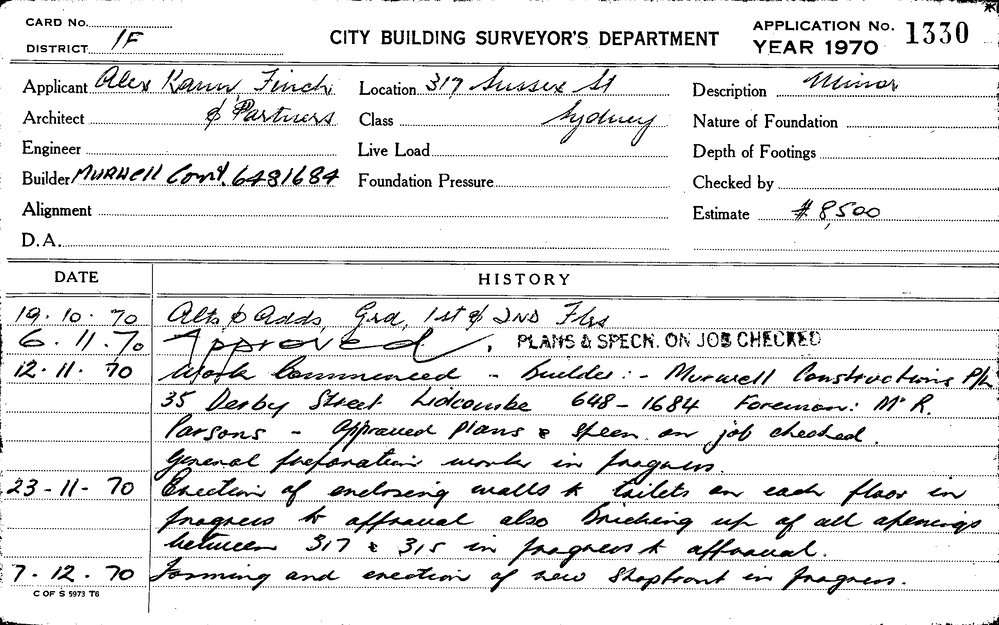 CARD No.
DISTRICT 1F
CITY BUILDING SURVEYOR'S DEPARTMENT
APPLICATION No. 1330
YEAR 1970
Applicant Alex Kann, Finch
Architect & Partners
Engineer
Builder MURWELL Const. 6481684
Alignment
D.A.
Location 317 Sussex St
Class Sydney
Live Load
Foundation Pressure
Description Minor
Nature of Foundation
Depth of Footings
Checked by
Estimate $8,500
DATE HISTORY
19.10.70 Alts & Adds, Grd, 1st & 2ND Flrs
6.11.70 Approved. PLANS & SPECN. ON JOB CHECKED
12.11.70 Work Commenced - Builder:- Murwell Constructions P/L
35 Derby Street Lidcombe 648-1684 Foreman: Mr R.
Parsons - Approved plans & specn. on job checked.
General preparation works in progress.
23-11-70 Erection of enclosing walls to toilets on each floor in
progress to approval also bricking up of all openings
between 317 & 315 in progress to approval.
7.12.70 Forming and erection of new shopfront in progress.
C OF S 5973 T6